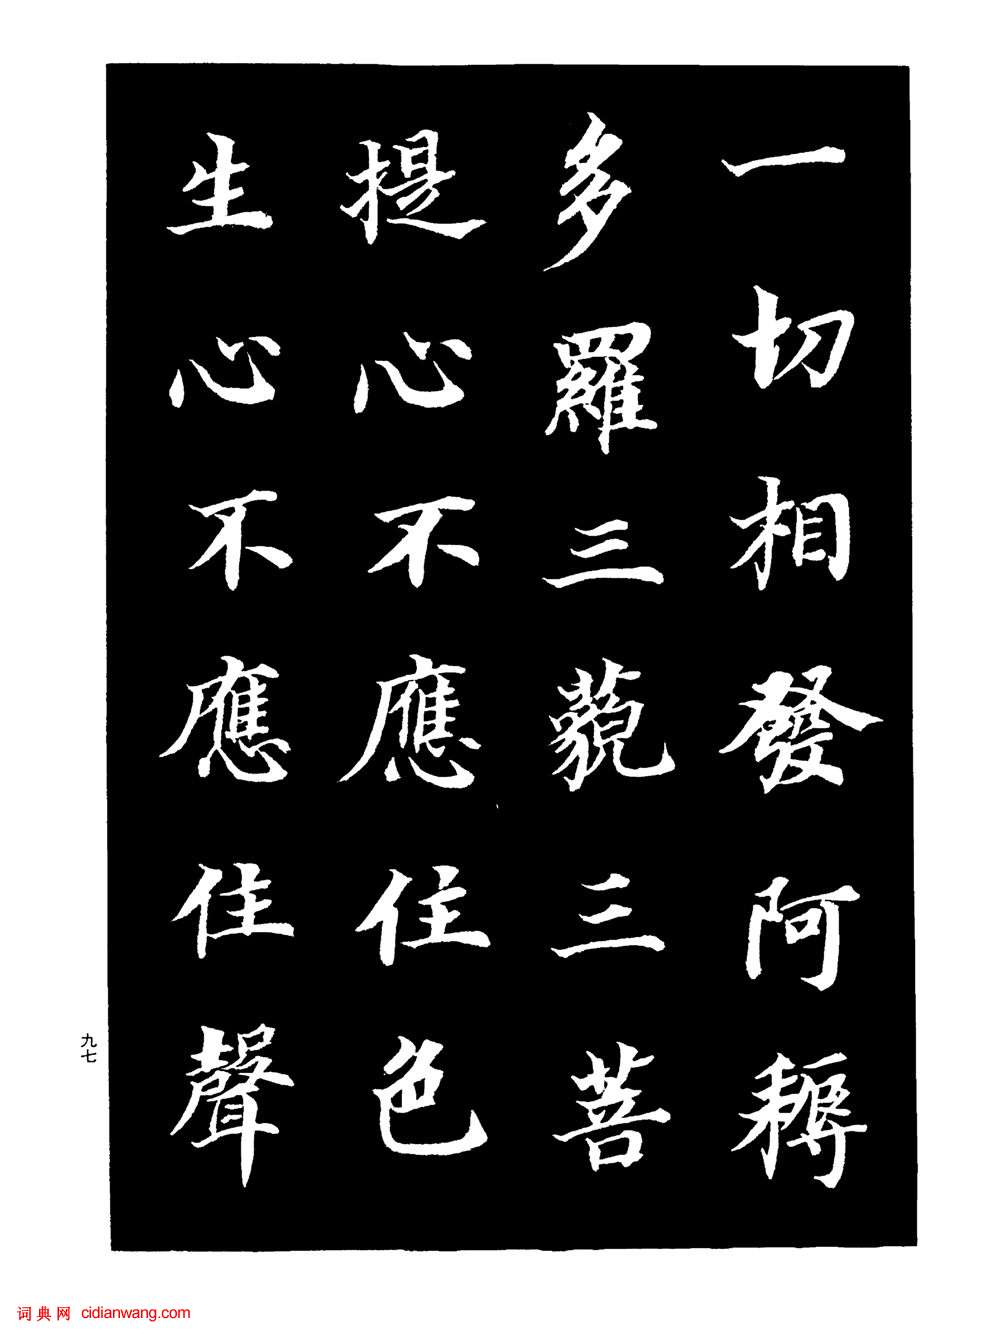 一切相發阿耨
多羅三藐三菩
提心不應住色
生心不應住聲
九七
词典网 cidianwang.com